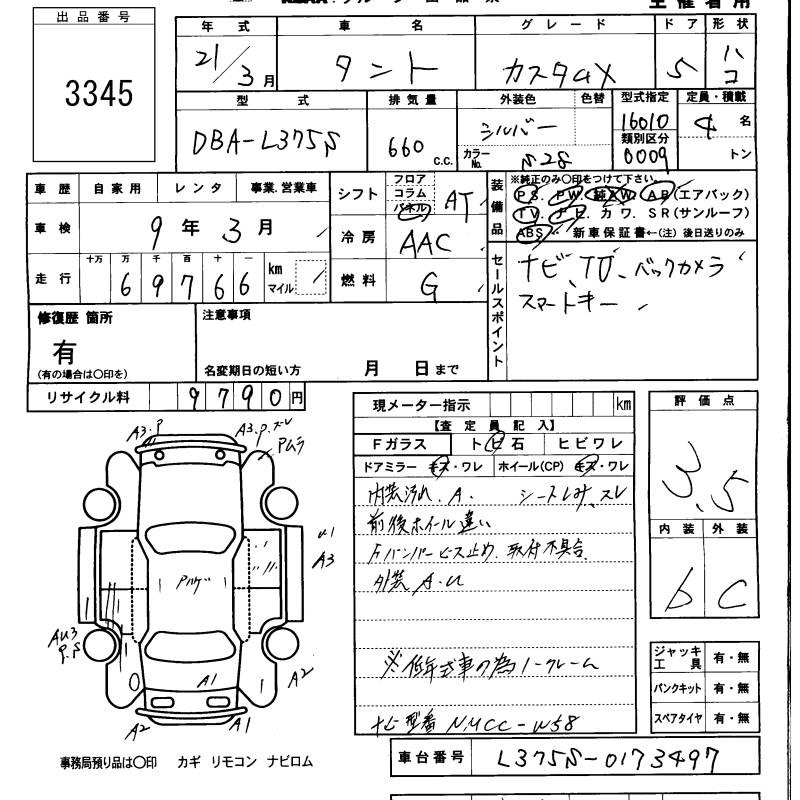 出品番号
3345
年式 車名 グレード ドア 形状
21/3月 タント カスタムX 5 ハコ
型式 排気量 外装色 色替 型式指定 定員・積載
DBA-L375S 660 C.C. シルバー 16010 4名
類別区分
カラーNo. S28 0009 トン
車歴 自家用 レンタ 事業.営業車
車検 9年3月
走行 十万 万 千 百 十 一 km マイル
69766
シフト フロア コラム パネル AT
冷房 AAC
燃料 G
装備品 ※純正のみ○印をつけて下さい。
PS. PW. 純AW. AB(エアバック)
TV. ナビ. カワ. SR(サンルーフ)
ABS. 新車保証書←(注) 後日送りのみ
セールスポイント
ナビ、TV、バックカメラ
スマートキー
修復歴 箇所
有
(有の場合は○印を)
注意事項
名変期日の短い方 月 日まで
リサイクル料 9790円
現メーター指示 km
【査定員記入】
Fガラス トビ石 ヒビワレ
ドアミラー キズ・ワレ ホイール(CP) キズ・ワレ
内装汚れ. A. シートしみ、スレ
前後ホイール違い
Fバンパービス止め. 取付不具合
外装A.U
※低年式車の為ノークレーム
ナビ型番 NMCC-W58
評価点
3.5
内装 外装
b C
ジャッキ 工具 有・無
パンクキット 有・無
スペアタイヤ 有・無
車台番号 L375S-0173497
A3.P
A3.P.スレ
Pムラ
U1
A3
AU3
P.S
A2
A1
A2
A1
事務局預り品は○印 カギ リモコン ナビロム